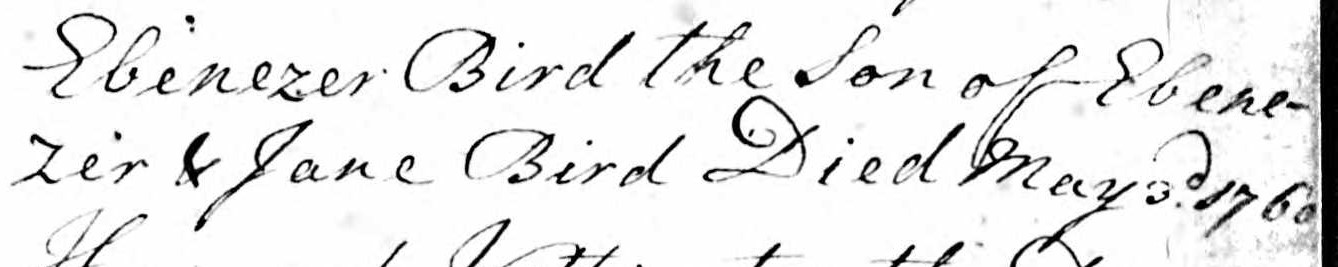 Ebenezer Bird the Son of Ebene-
zer & Jane Bird Died May 3d. 1760